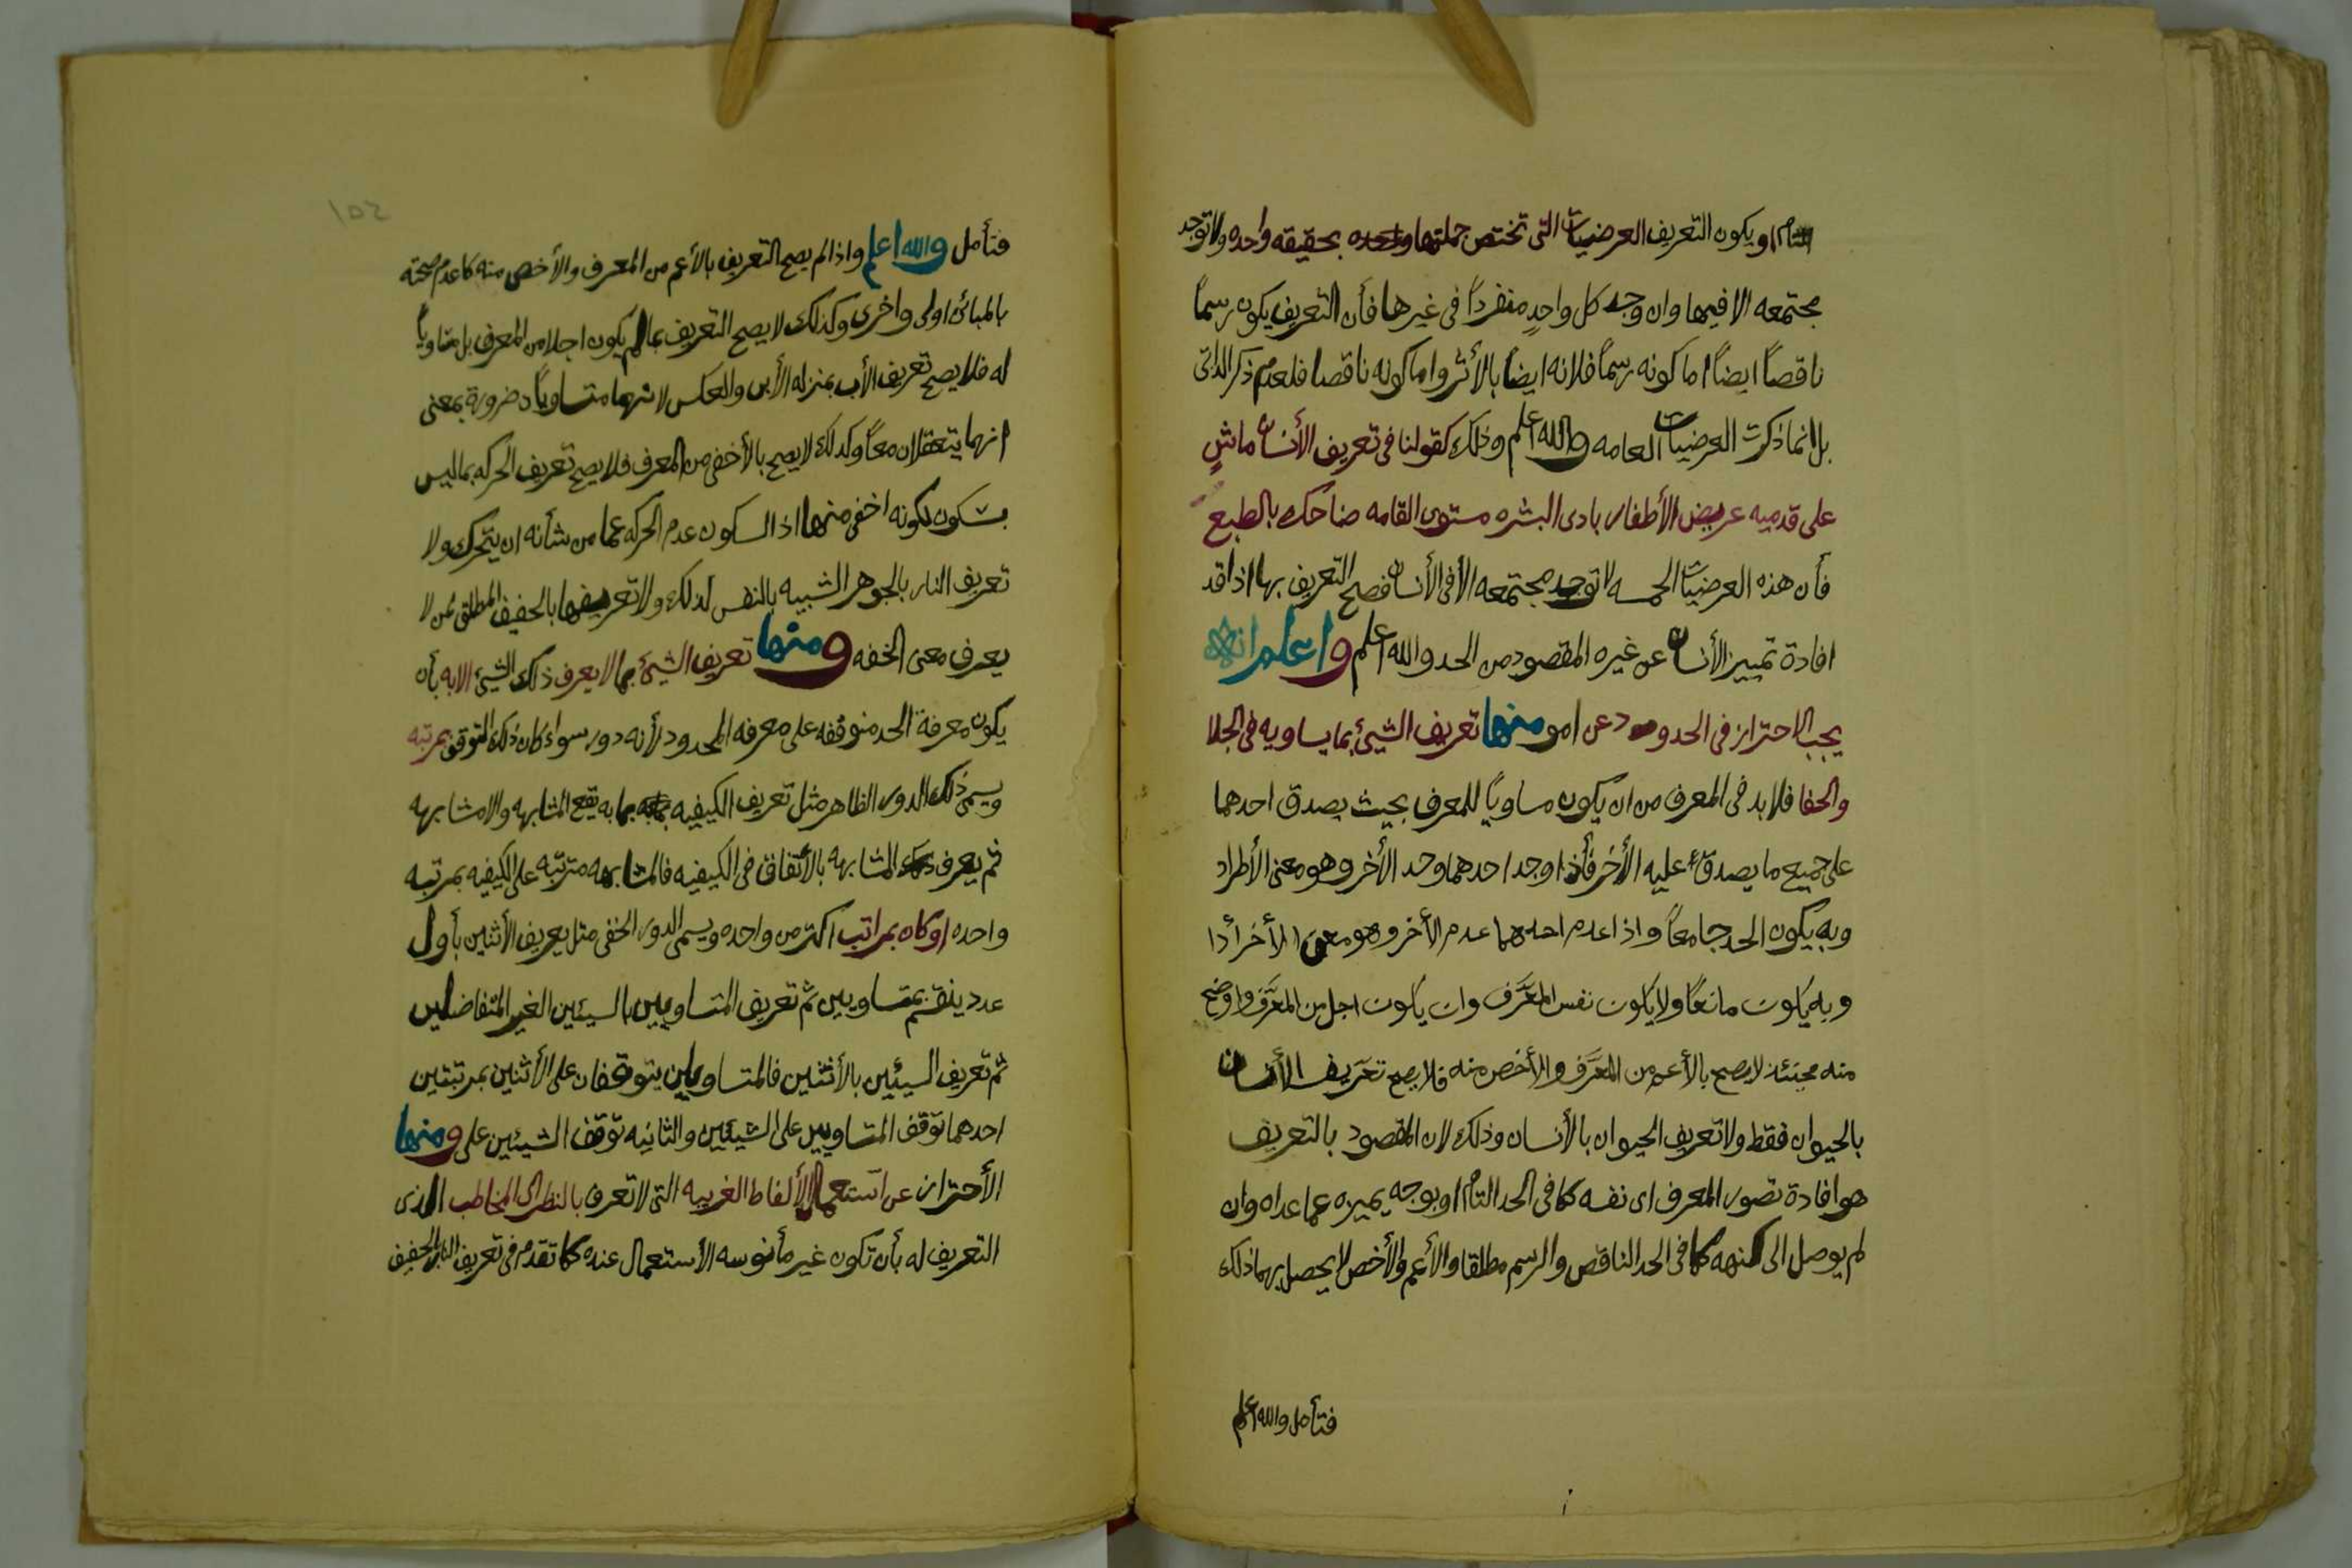 التام او يكون التعريف العرضيات التى تختص جملتها بحقيقه واحده ولا توجد
مجتمعه الا فيها وان وجد كل واحدٍ منفرداً فى غيرها فأن التعريف يكون رسماً
ناقصاً ايضاً اما كونه رسماً فلانه ايضاً بالأثر واما كونه ناقصا فلعدم ذكر الذاتى
بل انما ذكرت العرضيات العامه والله اعلم وذلك كقولنا فى تعريف الأنسان ماشٍ
على قدميه عريض الأظفار بادى البشره مستوى القامه ضاحك بالطبع
فأن هذه العرضيات الخمسه لا توجد مجتمعه الا فى الأنسان فصح التعريف بها اذا قد
افادة تمييز الأنسان عن غيره المقصود من الحد والله اعلم واعلم انه
يجب الاحتراز فى الحدود عن امو منها تعريف الشيئ بما يساويه فى الجلا
والخفا فلا بد فى المعرف من ان يكون مساوياً للمعرف بحيث يصدق احدهما
على جميع ما يصدق عليه الأخر فأذا وجد احدهما وجد الأخر وهو معنى الأطراد
وبه يكون الحد جامعاً واذا عدم احدهما عدم الأخر وهو معنى
وبه يكون مانعاً ولا يكون نفس المعَرَّف وان يكون اجل من المعَرَّف واوضح
منه لا يصح بالأعم من المعَرَّف والأخص منه فلا يصح تعريف الأنسان
بالحيوان فقط ولا تعريف الحيوان بالأنسان وذلك لان المقصود بالتعريف
هو افادة تصور المعرف اى نفسه كما فى الحد التام او بوجه يميزه عما عداه وان
لم يوصل الى كنهه كما فى الحد الناقص والرسم مطلقا والأعم والأخص لا يحصل بهما ذلك
فتأمل والله اعلم
١٥٢
فتأمل والله اعلم واذا لم يصح التعريف بالأعم من المعرف والأخص منه كا عدم صحته
بالمبائن اولى واخرى وكذلك لا يصح التعريف بما لم يكون اجلا من المعرف بل متساوياً
له فلا يصح تعريف الأب بمنزله الأبن والعكس لانهما متساويان ضرورة بمعنى
انهما يتعقلان معاً وكذلك لا يصح بالأخفى من المعرف فلا يصح تعريف الحركه بما ليس
بسكون لكونه اخفى منها اذ السكون عدم الحركه عما من شأنه ان يتحرك ولا
تعريف النار بالجوهر الشبيه بالنفس لذلك ولا تعريفها بالخفيف المطلق لمن لا
يعرف معنى الخفه ومنها تعريف الشيئ بما لا يعرف ذلك الشيئ الا به بأن
يكون معرفة الحد متوقفه على معرفه المحدود لأنه دور سواء كان ذلك التوقف بمرتبه
ويسمى ذلك الدور الظاهر مثل تعريف الكيفيه بما به يقع المشابهه والا مشابهه
ثم يعرف المشابهه بالأتفاق فى الكيفيه فالمشابهه مترتبه على الكيفيه بمرتبه
واحده او كان بمراتب اكثر من واحده ويسمى الدور الخفى مثل يعريف الأثنين بأول
عدد ينقسم بمتساويين ثم تعريف المتساويين بالسيئين الغير المتفاضلين
ثم تعريف السيئين بالأثنين فالمتساويين يتوقفان على الأثنين بمرتبتين
احدهما توقف المتساويين على الشيئين والثانيه توقف الشيئين على ومنها
الأحتراز عن استعمال الألفاط الغريبه التى لا تعرف بالنظر الى المخاطب الذى
التعريف له بأن تكون غير مأنوسه الأستعمال عنده كما تقدم فى تعريف النار بالخفيف